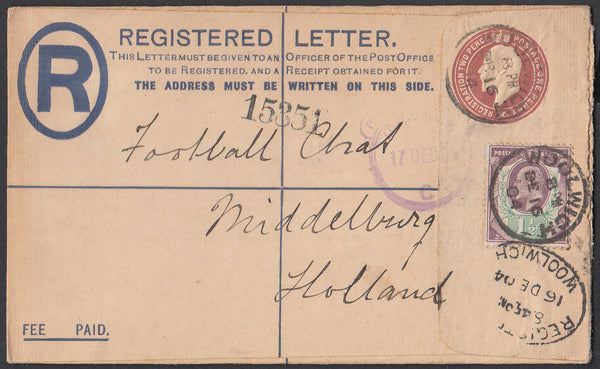 REGISTERED LETTER.
THIS LETTER MUST BE GIVEN TO AN OFFICER OF THE POST OFFICE
TO BE REGISTERED, AND A RECEIPT OBTAINED FOR IT.
THE ADDRESS MUST BE WRITTEN ON THIS SIDE.
R
REGISTRATION TWO PENCE POSTAGE ONE PENNY
15351
17 DEC 04
C
Football Chat
Middelburg
Holland
POST
1½
WOOLWICH
REGIST
8.45 PM
16 DE 04
WOOLWICH
FEE PAID.